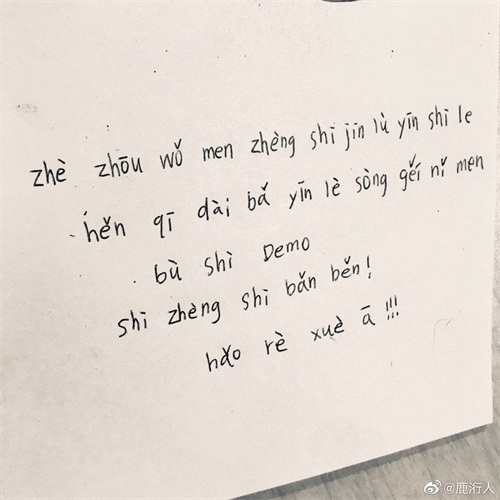 zhè zhōu wǒ men zhèng shì jìn lù yīn shì le
hěn qī dài bǎ yīn lè sòng gěi nǐ men
bù shì Demo
shì zhèng shì bǎn běn!
hǎo rè xuè ā!!!
@鹿洐人